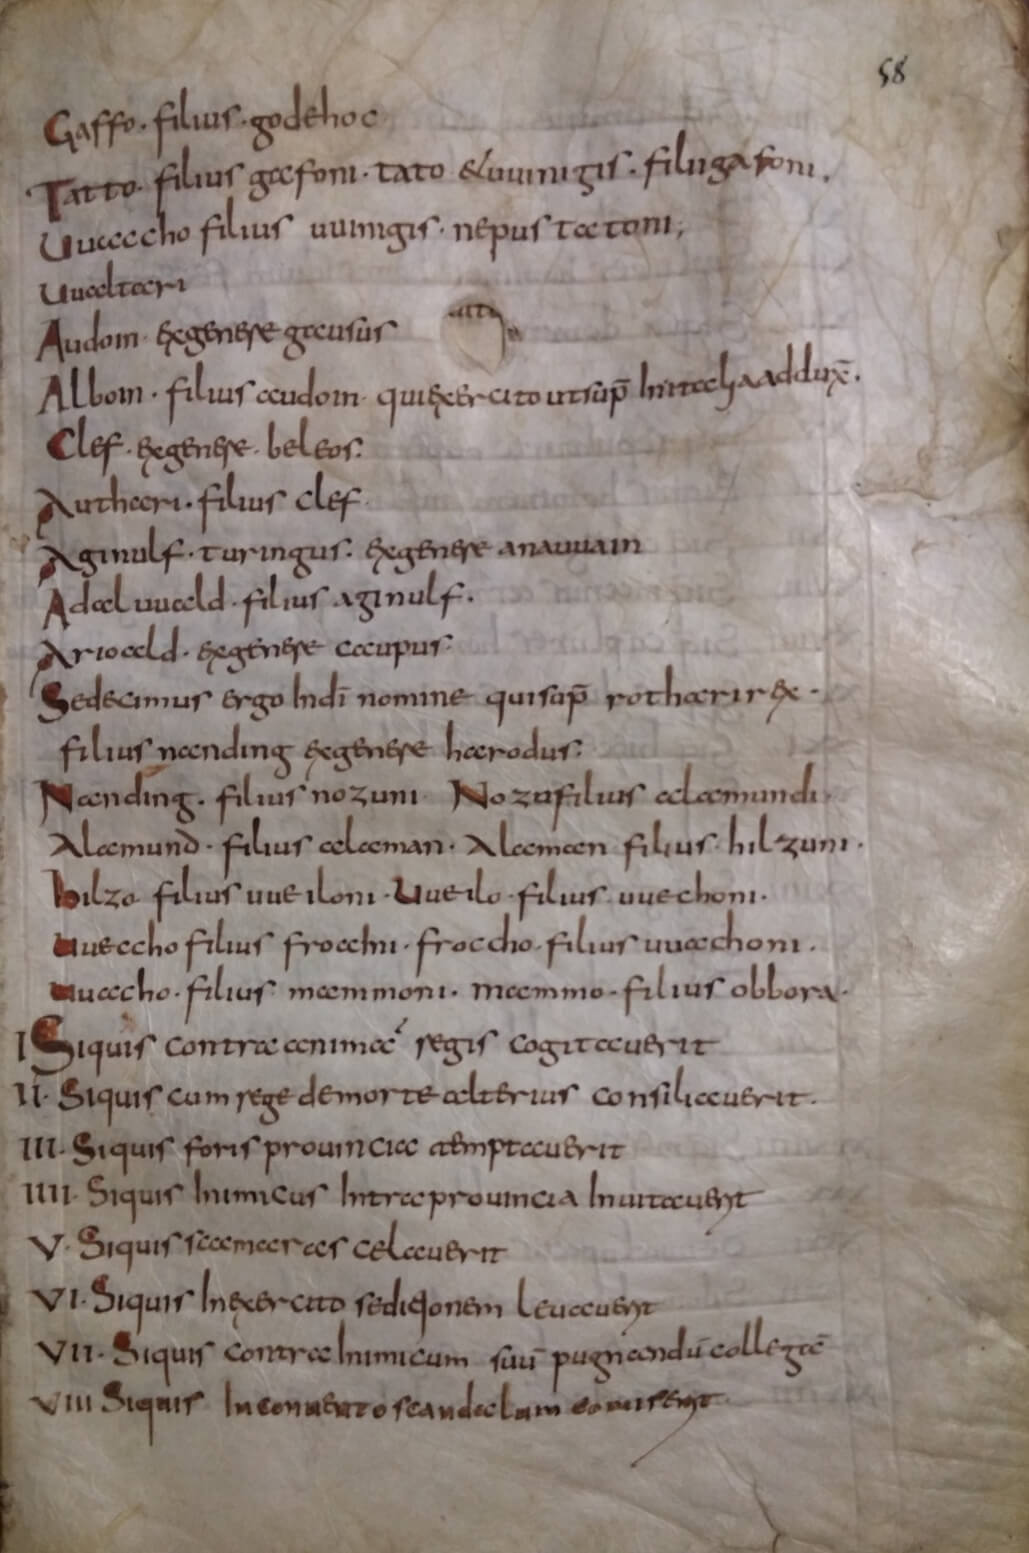 58
Gaffo. filius. godehoc
Tatto. filius gaffoni. tato & uuinigis. filii gaffoni.
Uuaccho filius uuinigis. nepus tatoni;
Uualtari
Audoin. exgenere gausus
Alboin. filius audoin. qui exercito ut sup̄ In italia adduxē.
Clef. exgenere. beleos.
Authari. filius clef.
Aginulf. turingus. exgenere anauuain
Adaluuald. filius aginulf.
Arioald. exgenere caupus.
Sedecimus ergo Indī nomine qui sup̄ rothari rex.
filius nanding exgenere harodus.
Nanding. filius nozuni Nozu filius alamundi
Alamund. filius alaman. Alaman filius hilzuni.
hilzo filius uueiloni. Uueilo. filius uuechoni.
Uueccho filius frocchni. froccho. filius uuachoni.
Uuaccho. filius mammoni. mammo. filius obbora.
I Siquis contra anima regis cogitauerit
II. Siquis cum rege de morte alterius consiliauerit.
III. Siquis foris prouincia temptauerit
IIII. Siquis Inimicus Intra prouincia Inuitauerit
V. Siquis scamaras celauerit
VI. Siquis In exercito sedicionem leuauerit
VII. Siquis contra Inimicum suū pugnandū collegā
VIII Siquis In conuento scandalum comiserit